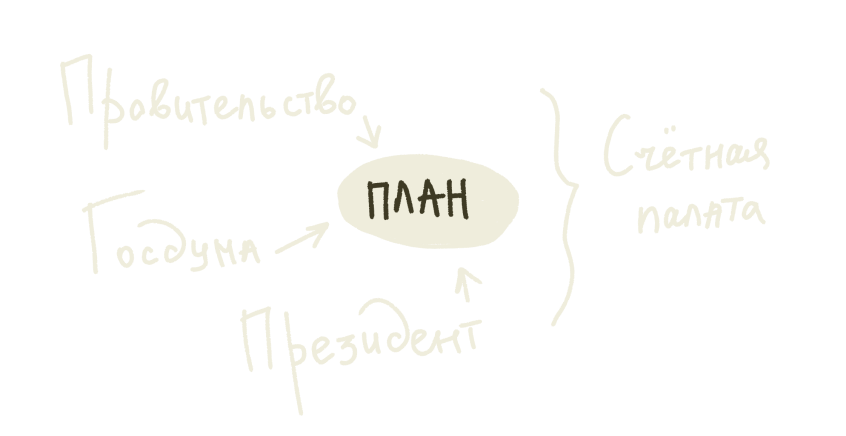 Правительство
ПЛАН
Госдума
Президент
Счётная
палата